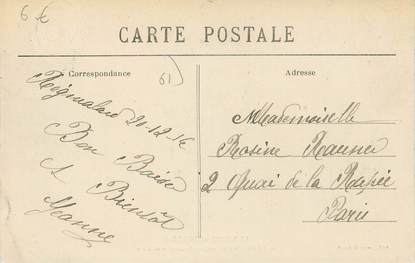 6 €
CARTE POSTALE
Correspondance
61
Adresse
Regmalard 20-12-14
Bon Baiser
A Bientôt
Jeanne
Mademoiselle
Rosine
2 Quai de la Rapée
Paris